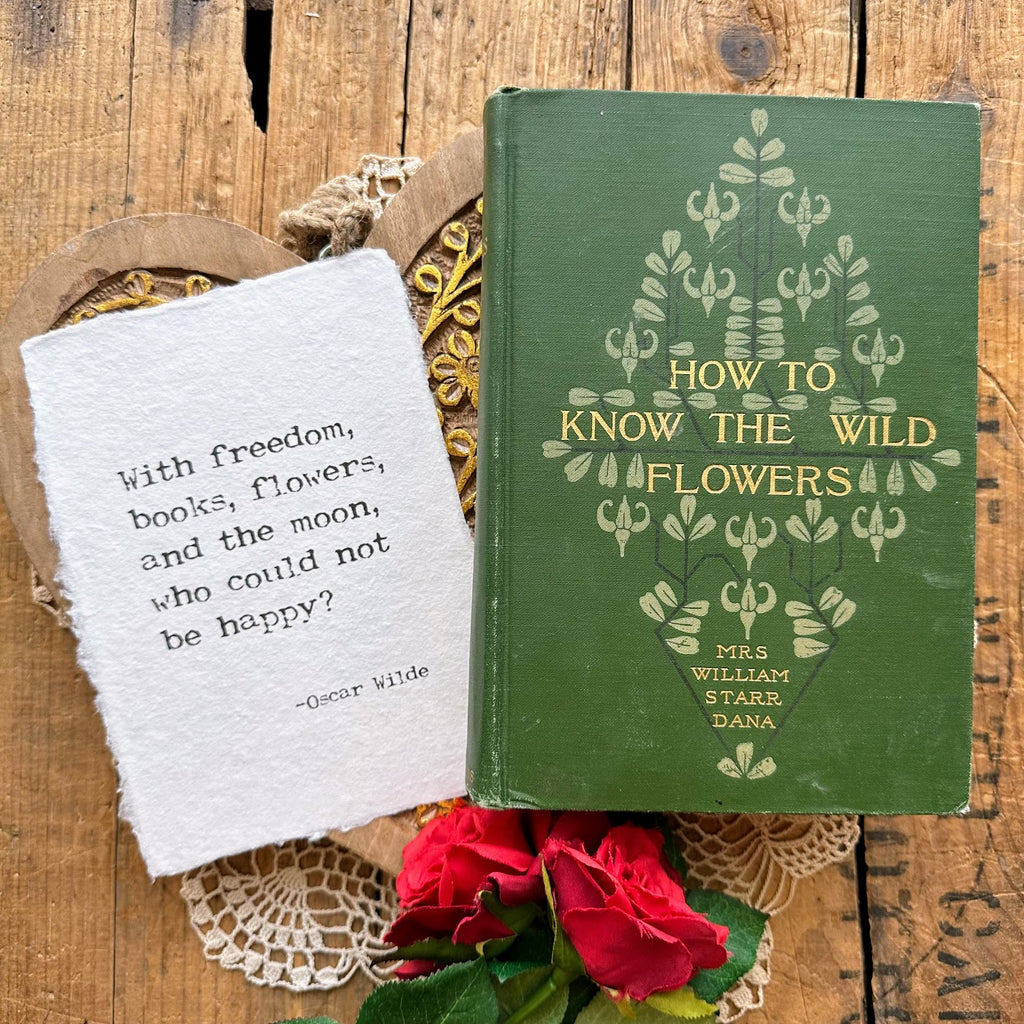 With freedom,
books, flowers,
and the moon,
who could not
be happy?
-Oscar Wilde
HOW TO
KNOW THE WILD
FLOWERS
MRS
WILLIAM
STARR
DANA